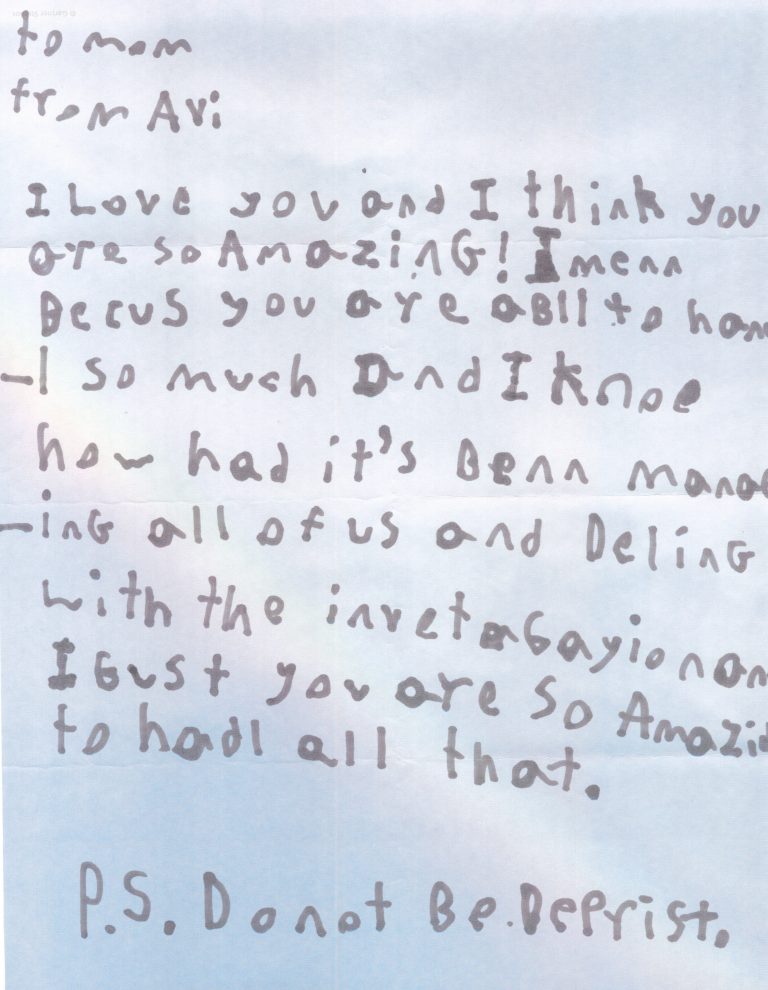 to mom
from Avi
I Love you and I think you
are so AmaziNG! I menn
Becus you are aBll to han
-l so much And I knoe
how had it's Benn manag
-inG all of us and DelinG
with the invetaGayion an
I Gust you are so Amazi
to hadl all that.
P.S. Do not Be Deprist.